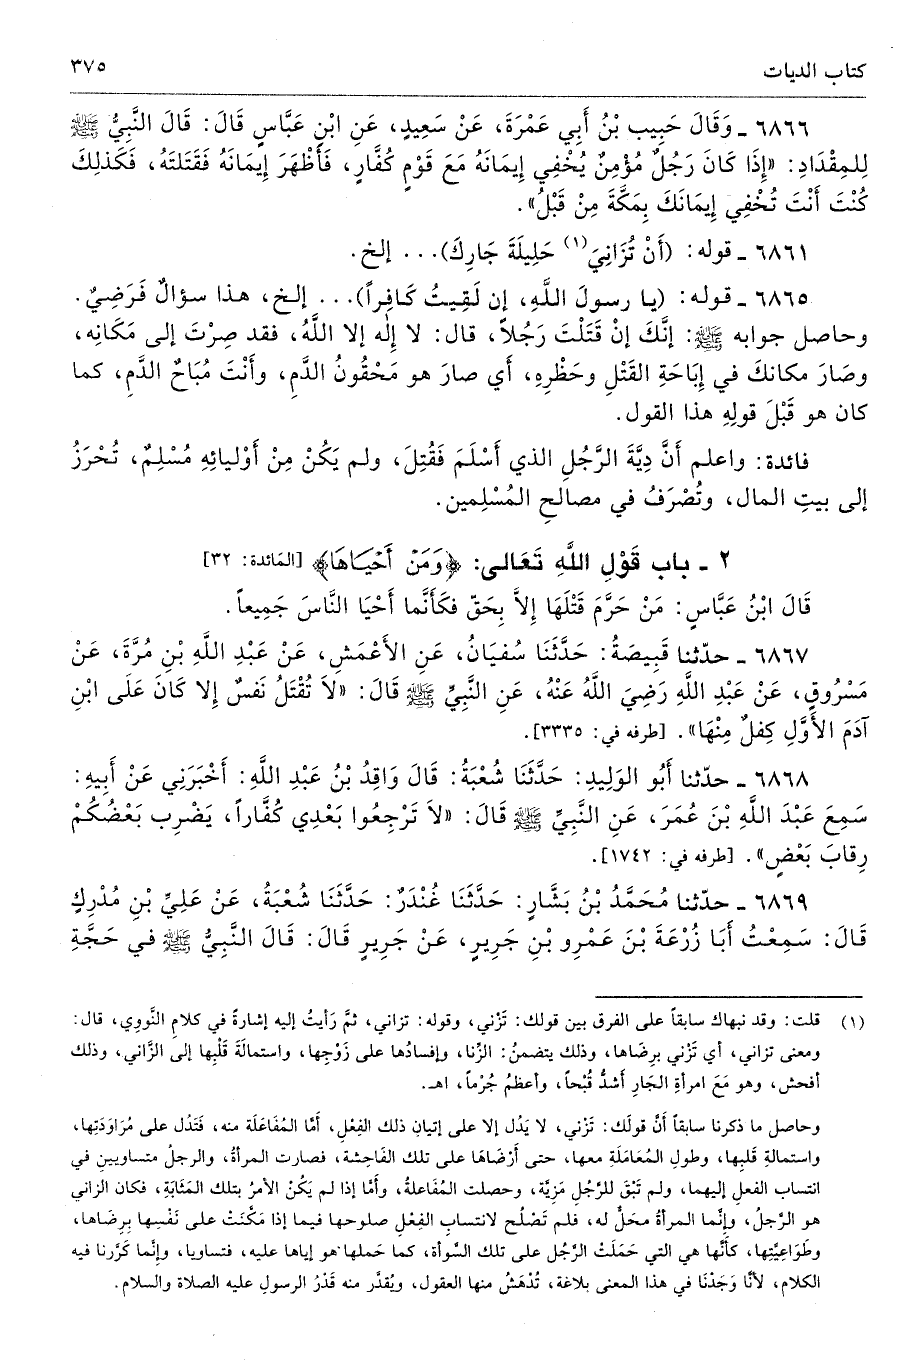 كتاب الديات ٣٧٥
٦٨٦٦ ـ وَقَالَ حَبِيب بْنُ أَبِي عَمْرَةَ، عَنْ سَعِيدٍ، عَنِ ابْنِ عَبَّاسٍ قَالَ: قَالَ النَّبِيُّ ﷺ
لِلمِقْدَادِ: «إِذَا كَانَ رَجُلٌ مُؤْمِنٌ يُخْفِي إِيمَانَهُ مَعَ قَوْمٍ كُفَّارٍ، فَأَظْهَرَ إِيمَانَهُ فَقَتَلتَهُ، فَكَذلِكَ
كُنْتَ أَنْتَ تُخْفِي إِيمَانَكَ بِمَكَّةَ مِنْ قَبْلُ».
٦٨٦١ ـ قوله: (أَنْ تُزَانِيَ(١) حَلِيلَةَ جَارِكَ)... إلخ.
٦٨٦٥ ـ قوله: (يا رسولَ اللَّهِ، إن لَقِيتُ كَافِراً)... إلخ، هذا سؤالٌ فَرَضِيٌ.
وحاصل جوابه ﷺ: إنَّكَ إنْ قَتَلْتَ رَجُلاً، قال: لا إله إلا اللَّهُ، فقد صِرْتَ إلى مَكَانِه،
وصَارَ مكانكَ في إبَاحَةِ القَتْلِ وحَظْرِهِ، أي صارَ هو مَحْقُونُ الدَّمِ، وأَنْتَ مُبَاحٌ الدَّمِ، كما
كان هو قَبْلَ قولِهِ هذا القول.
فائدة: واعلم أَنَّ دِيَّةَ الرَّجُلِ الذي أَسْلَمَ فَقُتِلَ، ولم يَكُنْ مِنْ أَوْليائِهِ مُسْلِمٌ، تُحْرَزُ
إلى بيتِ المال، وتُصْرَفُ في مصالحِ المُسْلِمين.
٢ ـ باب قَوْلِ اللَّهِ تَعَالى: ﴿وَمَنْ أَحْيَاهَا﴾ [المَائدة: ٣٢]
قَالَ ابْنُ عَبَّاسٍ: مَنْ حَرَّمَ قَتْلَهَا إِلاَّ بِحَقّ فكَأَنَّما أَحْيَا النَّاسَ جَمِيعاً.
٦٨٦٧ ـ حدّثنا قَبِيصَةُ: حَدَّثَنَا سُفيَانُ، عَنِ الأَعْمَشِ، عَنْ عَبْدِ اللَّهِ بْنِ مُرَّةَ، عَنْ
مَسْرُوقٍ، عَنْ عَبْدِ اللَّهِ رَضِيَ اللَّهُ عَنْهُ، عَنِ النَّبِيِّ ﷺ قَالَ: «لاَ تُقْتَلُ نَفسٌ إِلا كَانَ عَلَى ابْنِ
آدَمَ الأَوَّلِ كِفلٌ مِنْهَا». [طرفه في: ٣٣٣٥].
٦٨٦٨ ـ حدّثنا أَبُو الوَلِيدِ: حَدَّثَنَا شُعْبَةُ: قَالَ وَاقِدُ بْنُ عَبْدِ اللَّهِ: أَخْبَرَنِي عَنْ أَبِيهِ:
سَمِعَ عَبْدَ اللَّهِ بْنَ عُمَرَ، عَنِ النَّبِيِّ ﷺ قَالَ: «لاَ تَرْجِعُوا بَعْدِي كُفَّاراً، يَضْرِب بَعْضُكُمْ
رِقابَ بَعْضٍ». [طرفه في: ١٧٤٢].
٦٨٦٩ ـ حدّثنا مُحَمَّدُ بْنُ بَشَّارٍ: حَدَّثَنَا غُنْدَرٌ: حَدَّثَنَا شُعْبَةُ، عَنْ عَلِيِّ بْنِ مُدْرِكٍ
قَالَ: سَمِعْتُ أَبَا زُرْعَةَ بْنَ عَمْرِو بْنِ جَرِيرٍ، عَنْ جَرِيرٍ قَالَ: قَالَ النَّبِيُّ ﷺ في حَجَّةِ
(١) قلت: وقد نبهاك سابقاً على الفرق بين قولك: تَزْني، وقوله: تزاني، ثمَّ رَأيتُ إليه إشارةً في كلامِ النَّووي، قال:
ومعنى تزاني، أي تَزْني بِرِضَاها، وذلك يتضمنُ: الزِّنا، وإفسادُها على زَوْجِها، واستمالَةَ قَلْبِها إلى الزَّاني، وذلك
أفحش، وهو مَعَ امرأةِ الجَارِ أَشدُّ قُبْحاً، وأعظمُ جُرْماً، اهـ.
وحاصل ما ذكرنا سابقاً أَنْ قولَك: تَزْني، لا يَدُل إلا على إتيانِ ذلك الفِعْلِ، أمَّا المُفَاعَلَة منه، فَتَدُل على مُرَاوَدَتِها،
واستمالةِ قَلبِها، وطولِ المُعَامَلَةِ معها، حتى أَرْضَاهَا على تلك الفَاحِشة، فصارت المرأةُ، والرجلُ متساويينِ في
انتساب الفعلِ إليهما، ولم تَبْقَ للرَّجُلِ مَزِيَّة، وحصلت المُفَاعلةُ، وأمَّا إذا لم يَكُنْ الأمرُ بتلك المَثَابَةِ، فكان الزاني
هو الرَّجلُ، وإنَّما المرأةُ محَلٌّ له، فلم تَصْلُح لانتسابِ الفِعْلِ صلوحها فيما إذا مَكَّنَتْ على نَفْسِها بِرِضَاها،
وطَوَاعِيَّتِها، كأَنَّها هي التي حَمَلَتْ الرَّجُل على تلك السَّوأة، كما حَملها هو إياها عليه، فتساويا، وإنَّما كَرَّرنا فيه
الكلام، لأَنَّا وَجَدْنَا في هذا المعنى بلاغة، تُدْهَشُ منها العقول، ويُقدَّر منه قَدْرُ الرسولِ عليه الصلاة والسلام.